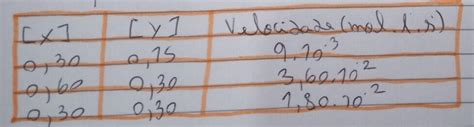 [X] [Y] Velocidade (mol.l.s)
0,30 0,15 9.10⁻³
0,60 0,30 3,60.10⁻²
0,30 0,30 1,80.10⁻²